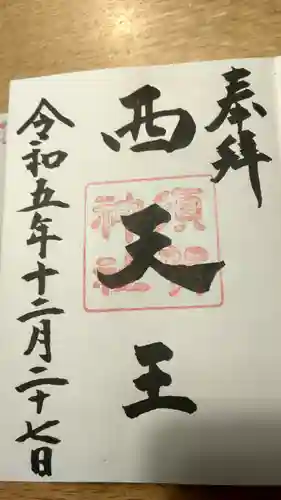 奉拝
西天王
須明神社
令和五年十二月二十七日